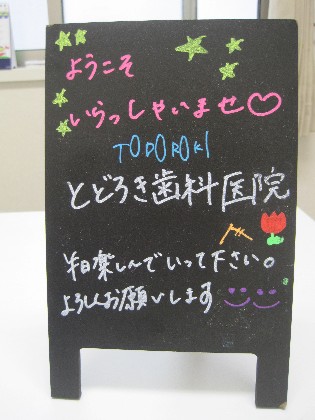 ようこそ
いらっしゃいませ♡
TODOROKI
とどろき歯科医院
半日楽しんでいって下さい。
よろしくお願いします